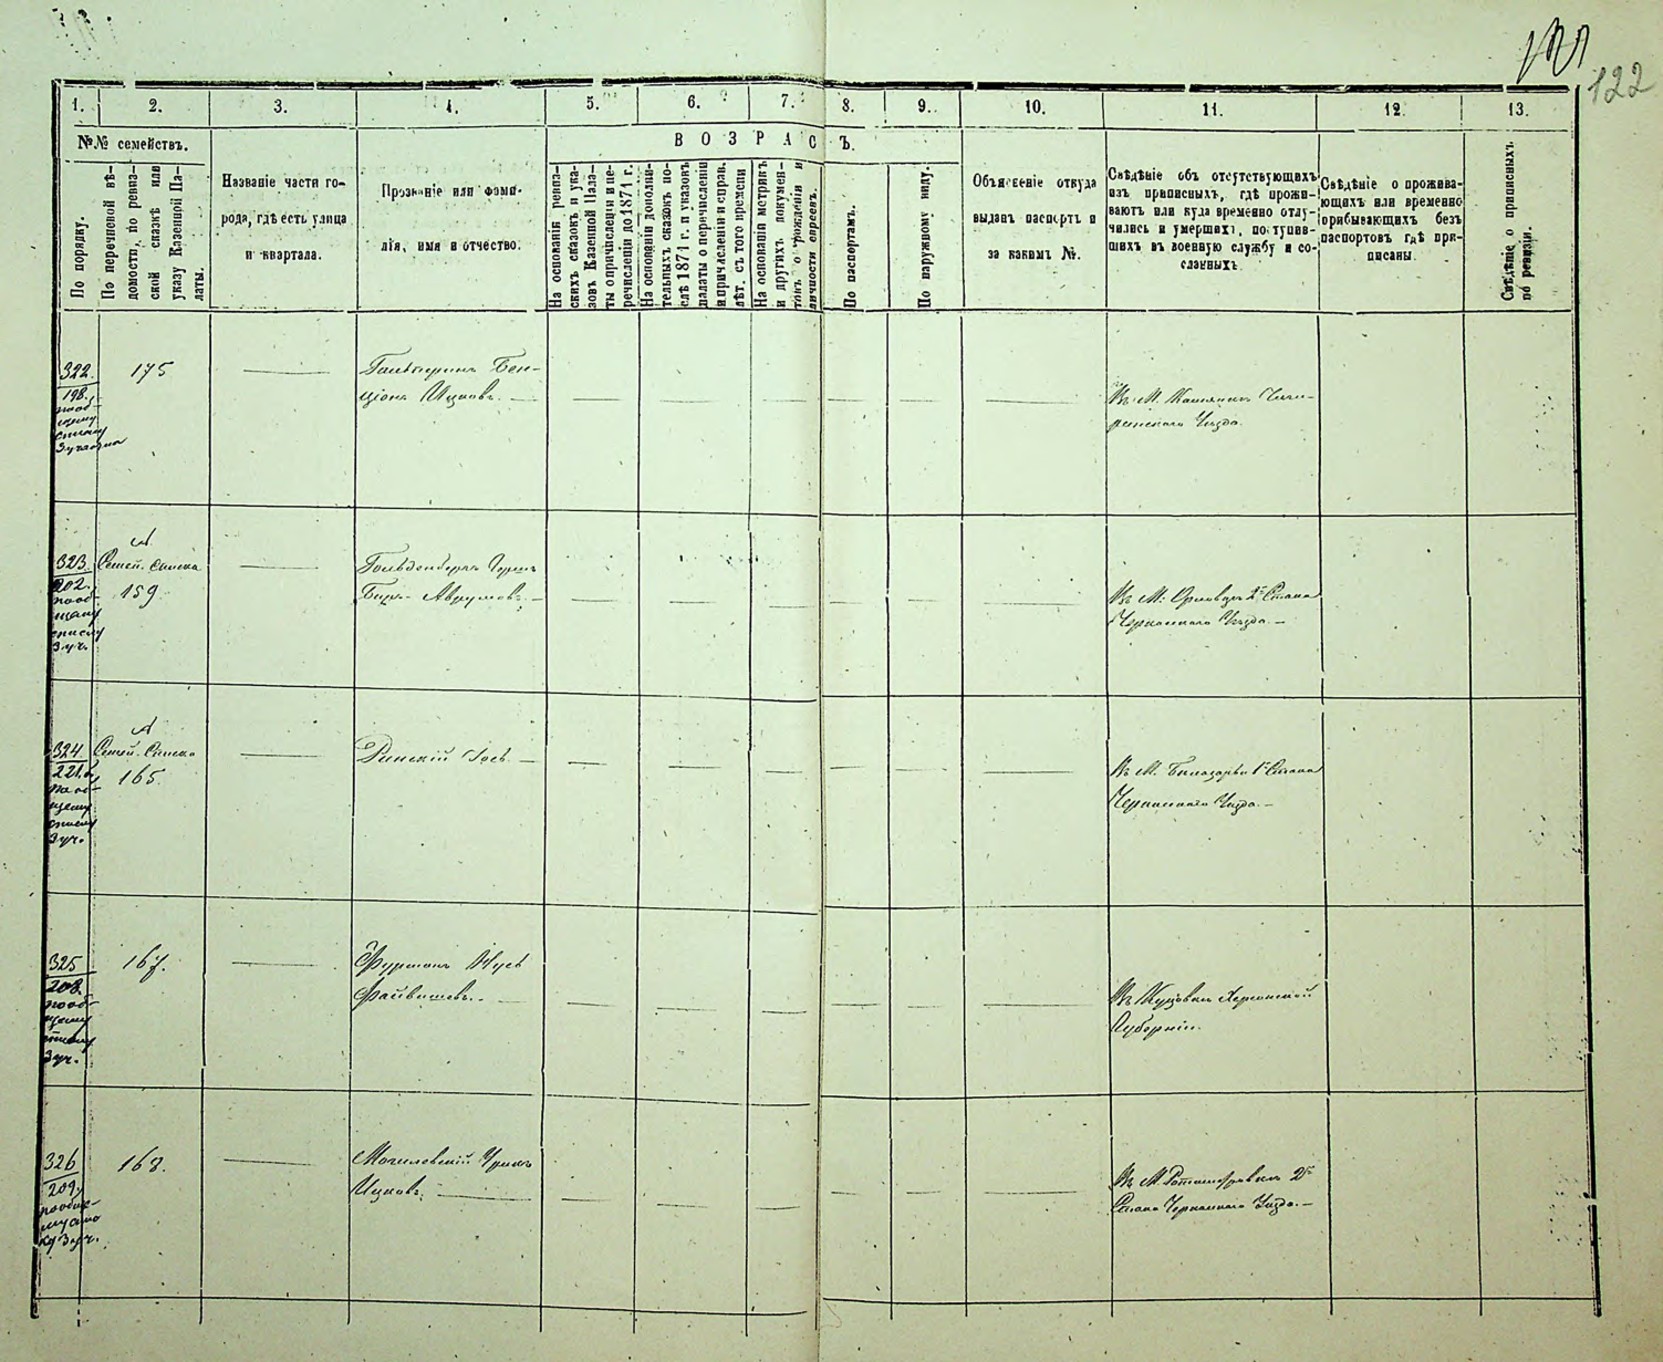 122
1. 2. 3. 4. 5. 6. 7. 8. 9. 10. 11. 12. 13.
№№ семействъ.
По порядку.
По перечневой вѣ-
домости, по ревиз-
ской сказкѣ или
указу Казенной Па-
латы.
Названіе части го-
рода, гдѣ есть улица
и квартала.
Прозваніе или фами-
лія, имя и отчество.
ВОЗРАСТЪ.
На основаніи ревиз-
скихъ сказокъ и ука-
зовъ Казенной Пала-
ты о причисленіи и пе-
речисленіи до 1871 г.
На основаніи дополни-
тельныхъ сказокъ по-
слѣ 1871 г. и указовъ
палаты о перечисленіи
и причисленіи и справ.
лѣт. съ того времени
На основаніи метрикъ
и другихъ докумен-
товъ о рожденіи и
личности евреевъ.
По паспортамъ.
По наружному виду.
Объясненіе откуда
выданъ паспортъ и
за какимъ №.
Свѣдѣніе объ отсутствующихъ
изъ приписныхъ, гдѣ прожи-
ваютъ или куда временно отлу-
чились и умершихъ, поступив-
шихъ въ военную службу и со-
сланныхъ.
Свѣдѣніе о прожива-
ющихъ или временно
прибывающихъ безъ
паспортовъ гдѣ при-
писаны.
Свѣдѣніе о приписныхъ
по ревизіи.
322.
198.
по об-
щему
списку
3 участка
175
Гальперинъ Бен-
ціонъ Ицковъ. —
Въ М. Каменкѣ Чиги-
ринскаго Уѣзда.
323.
202.
по об-
щему
списку
3 уч.
Семей. Списка
159
Гольденбергъ
Беръ Аврумовъ —
Въ М. Орловцѣ 2го Стана
Черкасскаго Уѣзда. —
324.
221.
по об-
щему
списку
3 уч.
Семей. Списка
165.
Ринскій Іосъ —
Въ М. Бѣлозерьи 1го Стана
Черкасскаго Уѣзда. —
325
208.
по об-
щему
списку
3 уч.
167.
Фурманъ Нусъ
Файвишевъ. —
Въ Куцовкѣ Херсонской
Губерніи.
326
209.
по обще-
му спис
ку 3 уч.
168.
Могилевскій
Ицковъ. —
Въ М. Ротмистровкѣ 2го
Стана Черкасскаго Уѣзда. —